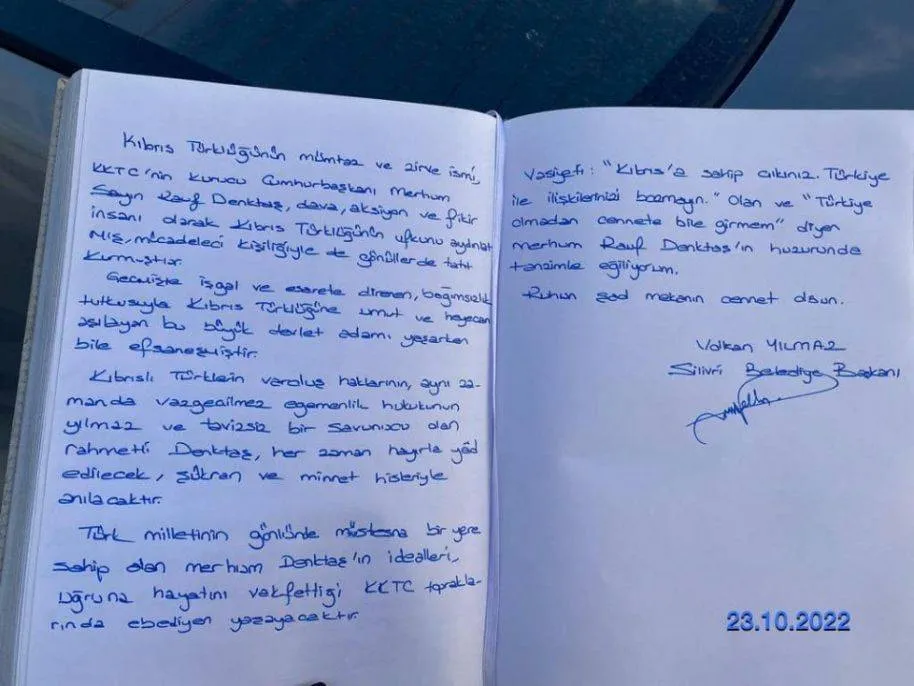 Kıbrıs Türklüğünün mümtaz ve zirve ismi,
KKTC'nin Kurucu Cumhurbaşkanı merhum
Sayın Rauf Denktaş, dava, aksiyon ve fikir
insanı olarak Kıbrıs Türklüğünün ufkunu aydınlat
mış, mücadeleci kişiliğiyle de gönüllerde taht
kurmuştur.
Geçmişte işgal ve esarete direnen, bağımsızlık
tutkusuyla Kıbrıs Türklüğüne umut ve heyecan
aşılayan bu büyük devlet adamı yaşarken
bile efsaneşmiştir.
Kıbrıslı Türklerin varoluş haklarının, aynı za-
manda vazgeçilmez egemenlik hukukunun
yılmaz ve tavizsiz bir savunucu olan
rahmetli Denktaş, her zaman hayırla yâd
edilecek, şükran ve minnet hisleriyle
anılacaktır.
Türk milletinin gönlünde müstesna bir yere
sahip olan merhum Denktaş'ın idealleri,
uğruna hayatını vakfettiği KKTC toprakla-
rında ebediyen yaşayacaktır.
Vasiyeti: "Kıbrıs'a sahip çıkınız. Türkiye
ile ilişkilerinizi bozmayın." Olan ve "Türkiye
olmadan cennete bile girmem" diyen
merhum Rauf Denktaş'ın huzurunda
tanzimle eğiliyorum.
Ruhun şad mekanın cennet olsun.
Volkan YILMAZ
Silivri Belediye Başkanı
23.10.2022